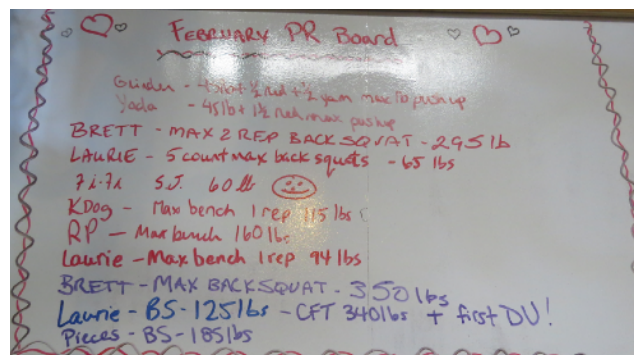 FEBRUARY PR BOARD
- 45lb + ½ red + ½ yam max TG pushup
Yoda - 45lb + 1½ red max pushup
BRETT - MAX 2 REP BACK SQUAT - 295 lb
LAURIE - 5 count max back squats - 65 lbs
S.J. 60 lb
KDog - Max bench 1 rep 115 lbs
RP - Max bench 160 lbs
Laurie - Max bench 1 rep 94 lbs
BRETT - MAX BACK SQUAT - 350 lbs
Laurie - BS - 125 lbs - CFT 340 lbs + first DU!
Pieces - BS - 185 lbs